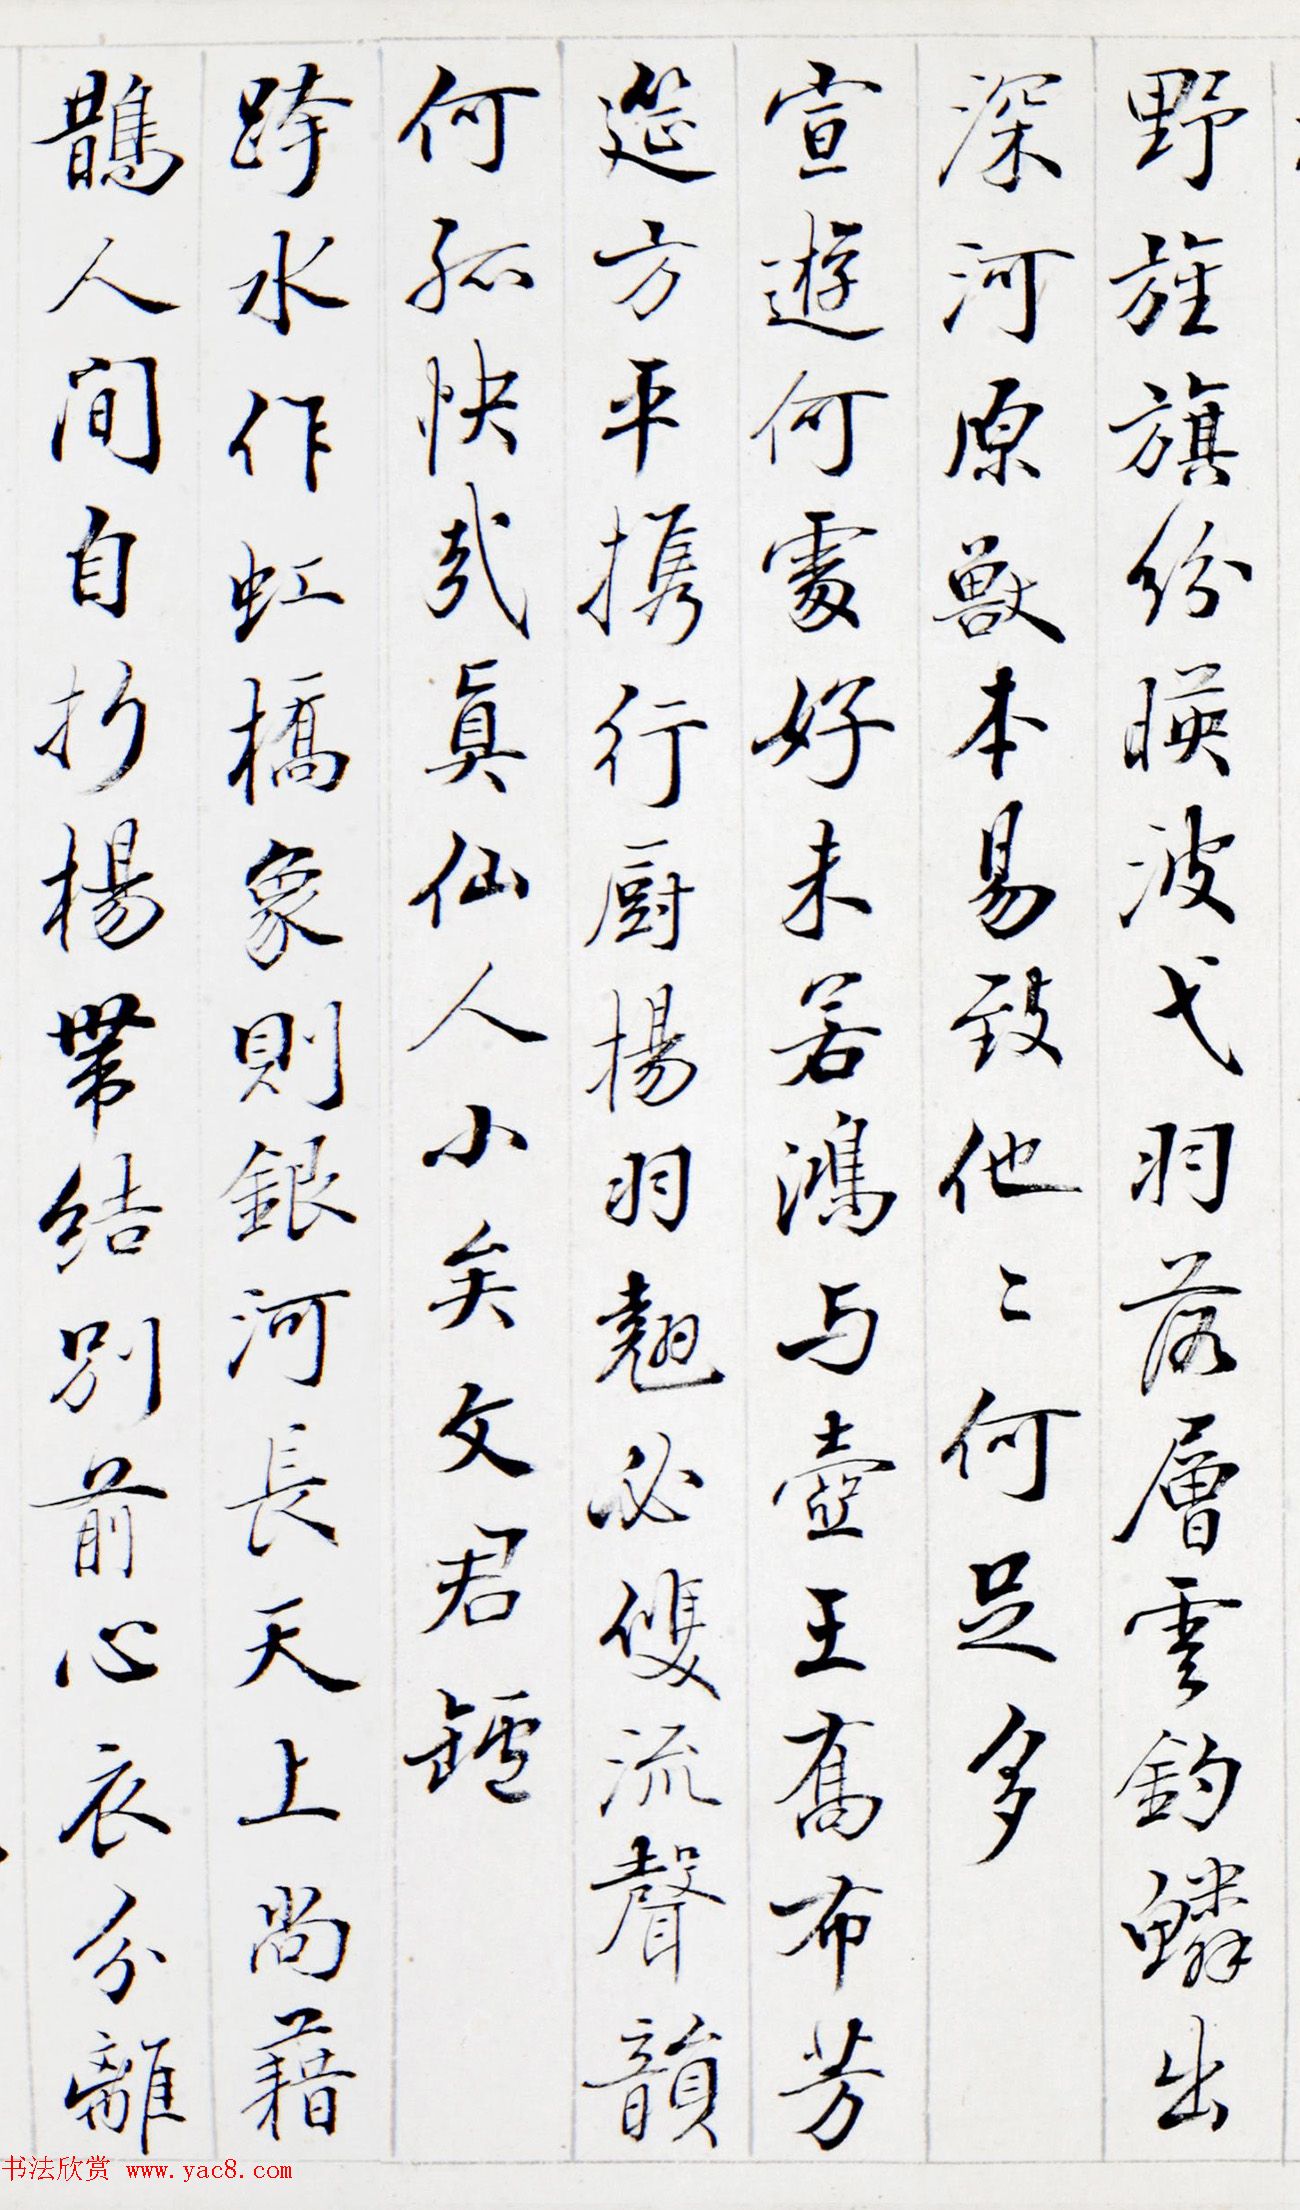 野旌旗份暎波弋羽落層雲釣鱗出
深河原獸本易致他〻何足多
宣遊何處好未若鴻与壺王喬布芳
筵方平携行厨楊羽翹必雙流聲韻
何孤快哉真仙人小矣文君鑪
跨水作虹橋象則銀河長天上尚藉
鵲人間自折楊帶結別前心衣分離
书法欣赏 www.yac8.com